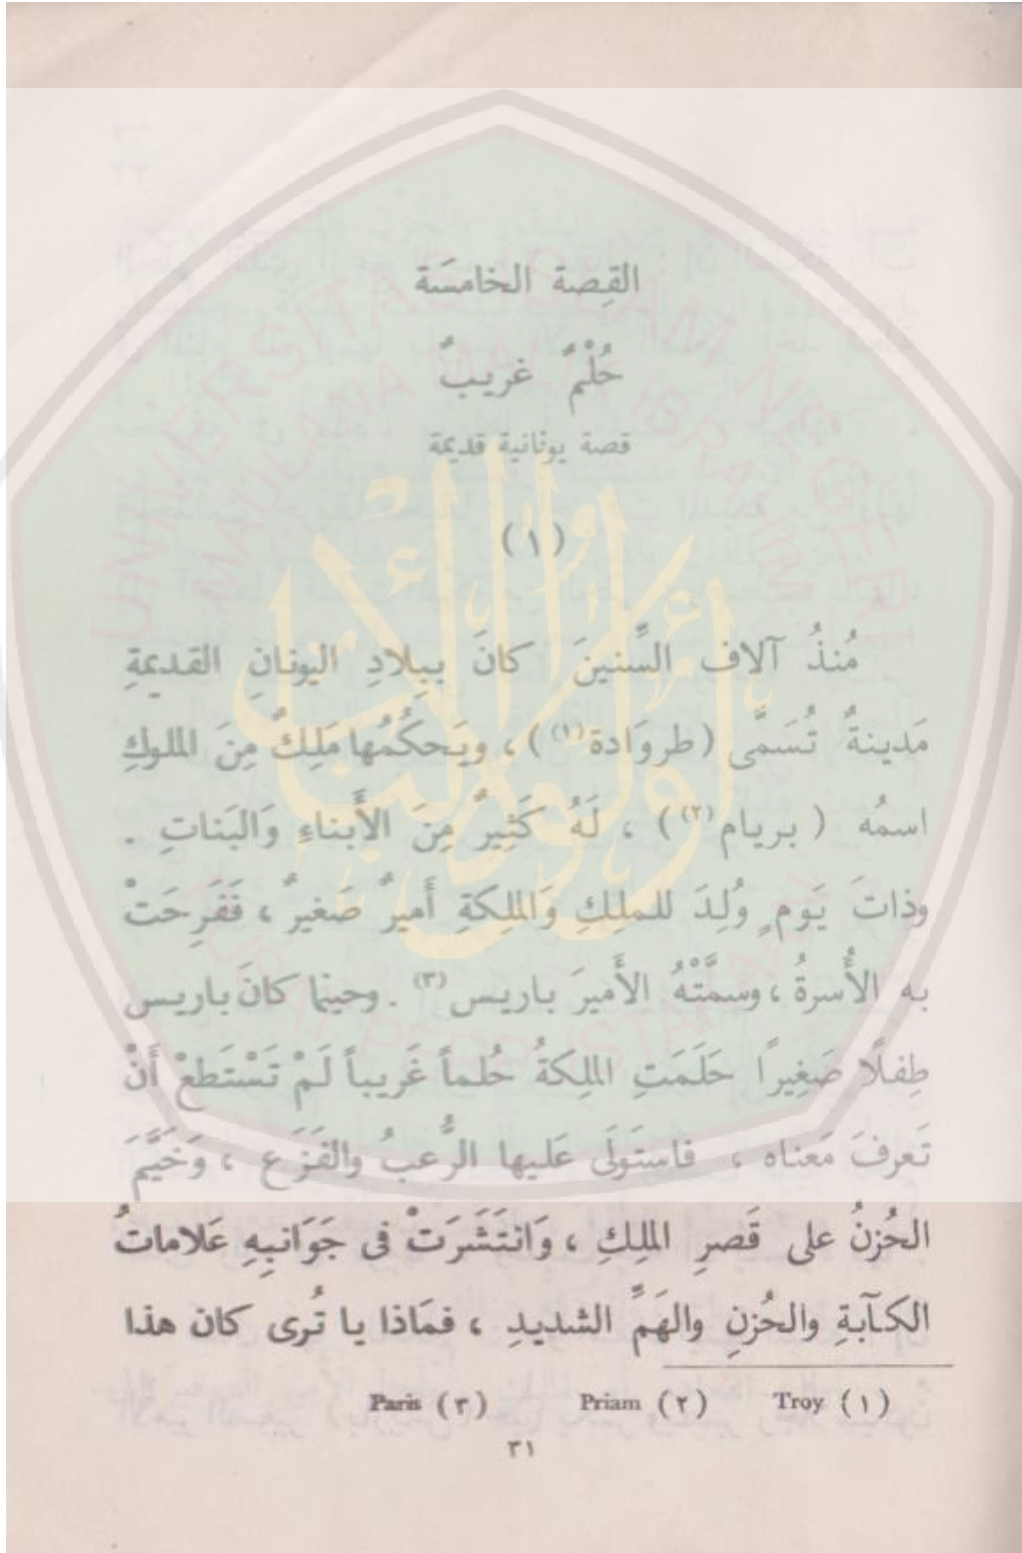 القِصة الخامسَة
حُلْمٌ غريبٌ
قصة يونانية قديمة
(١)
مُنذُ آلاف السِّنينَ كانَ ببِلادِ اليونانِ القديمةِ
مَدينةٌ تُسَمَّى (طروَادة(١)) ، ويَحكُمُها مَلِكٌ مِنَ الملوكِ
اسمُه ( بريام(٢)) ، لَهُ كَثِيرٌ مِنَ الأَبناءِ وَالبَناتِ .
وذاتَ يَوم ٍ وُلِدَ للملِكِ وَالملِكَةِ أَميرٌ صَغيرٌ ، فَفَرِحَتْ
به الأُسرةُ ، وسمَّتْهُ الأَميرَ باريس(٣) . وحينما كانَ باريس
طِفلًا صَغِيرًا حَلَمَتِ الملِكَةُ حُلماً غَريباً لَمْ تَسْتَطعْ أَنْ
تَعرفَ مَعناه ، فاستَولَى عَليها الرُّعبُ والفَزَع ، وَخَيَّمَ
الحُزنُ على قَصرِ الملِكِ ، وَانتَشَرَتْ فى جَوَانبِهِ عَلاماتُ
الكآبةِ والحُزنِ والهَمِّ الشديدِ ، فمَاذا يا تُرى كان هذا
Troy (١) Priam (٢) Paris (٣)
٣١
UNIVERSITAS ISLAM NEGERI
MAULANA MALIK IBRAHIM
PUSAT PERPUSTAKAAN